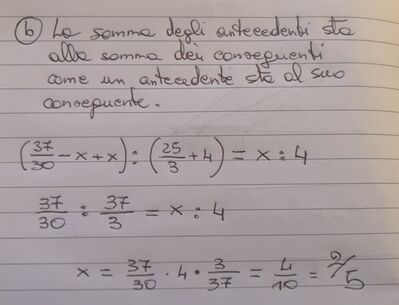 b) La somma degli antecedenti sta
alla somma dei conseguenti
come un antecedente sta al suo
conseguente.
(37/30 - x + x) : (25/3 + 4) = x : 4
37/30 : 37/3 = x : 4
x = 37/30 · 4 · 3/37 = 4/10 = 2/5